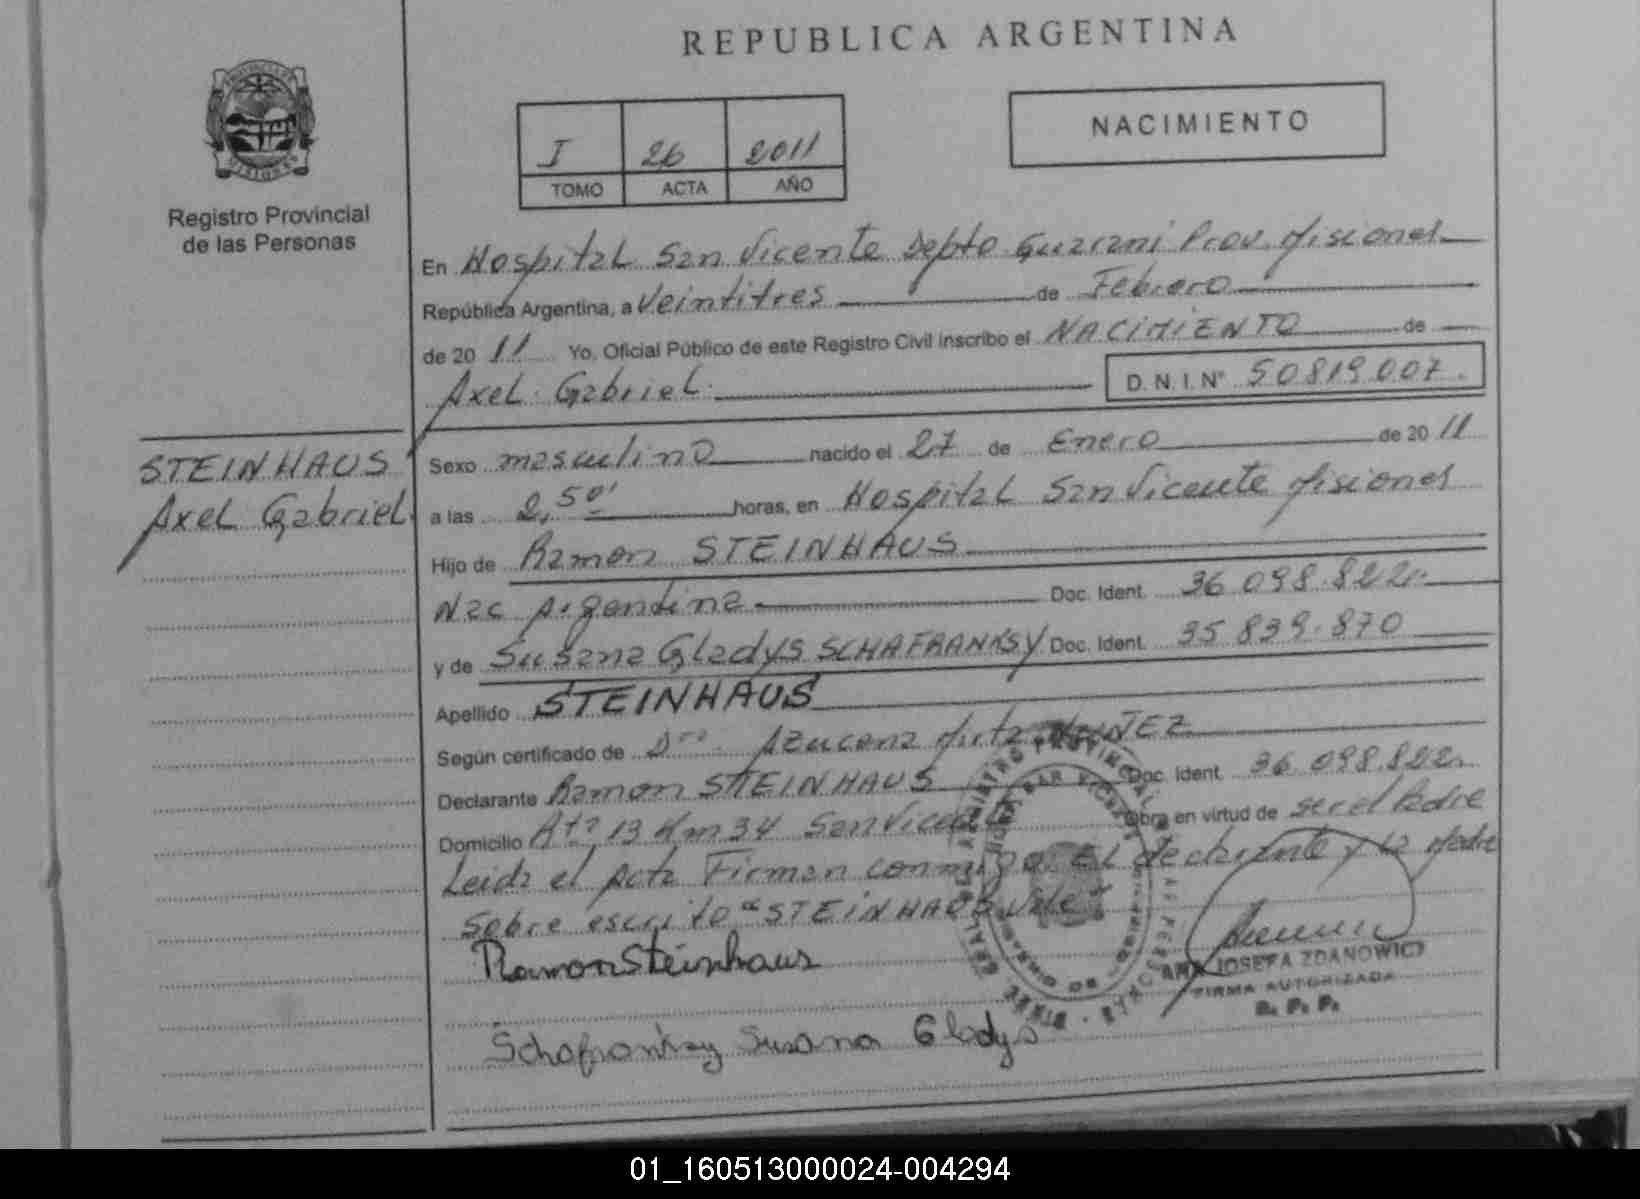 REPUBLICA ARGENTINA
PROVINCIA DE MISIONES
Registro Provincial
de las Personas
I 26 2011
TOMO ACTA AÑO
NACIMIENTO
En Hospital San Vicente Depto Guarani Prov. Misiones
República Argentina, a Veintitres de Febrero
de 20 11 Yo, Oficial Público de este Registro Civil inscribo el NACIMIENTO de
Axel Gabriel D. N. I. N° 50819007.
STEINHAUS
Axel Gabriel
Sexo masculino nacido el 27 de Enero de 20 11
a las 2,50' horas, en Hospital San Vicente Misiones
Hijo de Ramon STEINHAUS
Nac Argentina Doc. Ident. 36.098.822
y de Susana Gladys SCHAFRANKSY Doc. Ident. 35.839.870
Apellido STEINHAUS
Según certificado de Azucena Mirta
Declarante Ramon STEINHAUS Doc. Ident. 36.098.822
Domicilio Rta 13 Km 34 San Vicente Obra en virtud de ser el Padre
Leida el Acta Firman conmigo El declarante y la Madre
Sobre escrito "STEINHAUS" Vale
Ramon Steinhaus
ANA JOSEFA ZDANOWICZ
FIRMA AUTORIZADA
R. P. P.
Schafranksy Susana Gladys
01_160513000024-004294